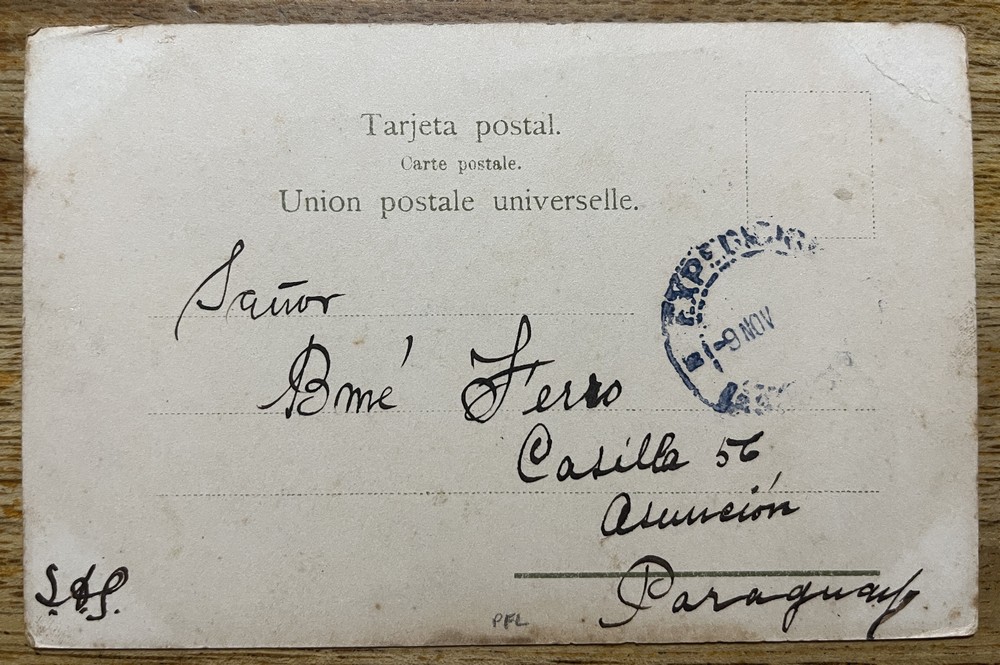 Tarjeta postal.
Carte postale.
Union postale universelle.
EXPEDICION
9 NOV
Señor
Bmé Ferro
Casilla 56
Asunción
Paraguay
PFL